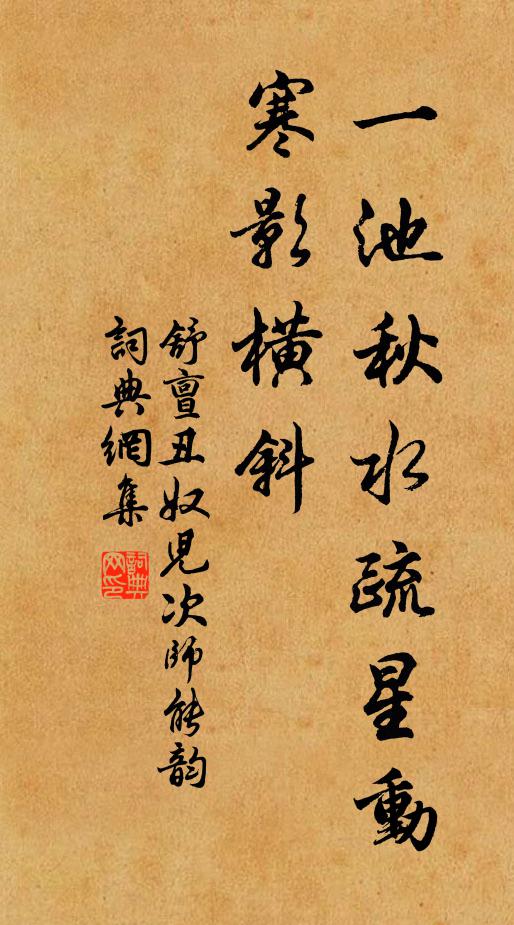 一池秋水疏星動
寒影橫斜
舒亶丑奴兒次師能韵
詞典網集
詞典網印